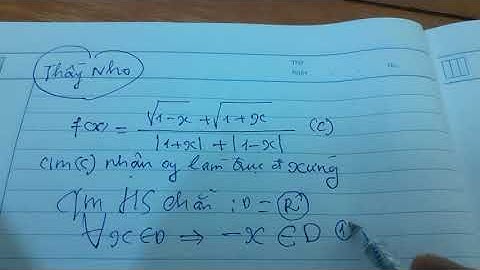 Thầy Nho
f(x) = (√1-x + √1+x) / (|1+x| + |1-x|) (C)
C/m (C) nhận oy làm trục đ xứng
C/m HS chẵn : D = R
∀x∈D ⇒ -x ∈ D ①